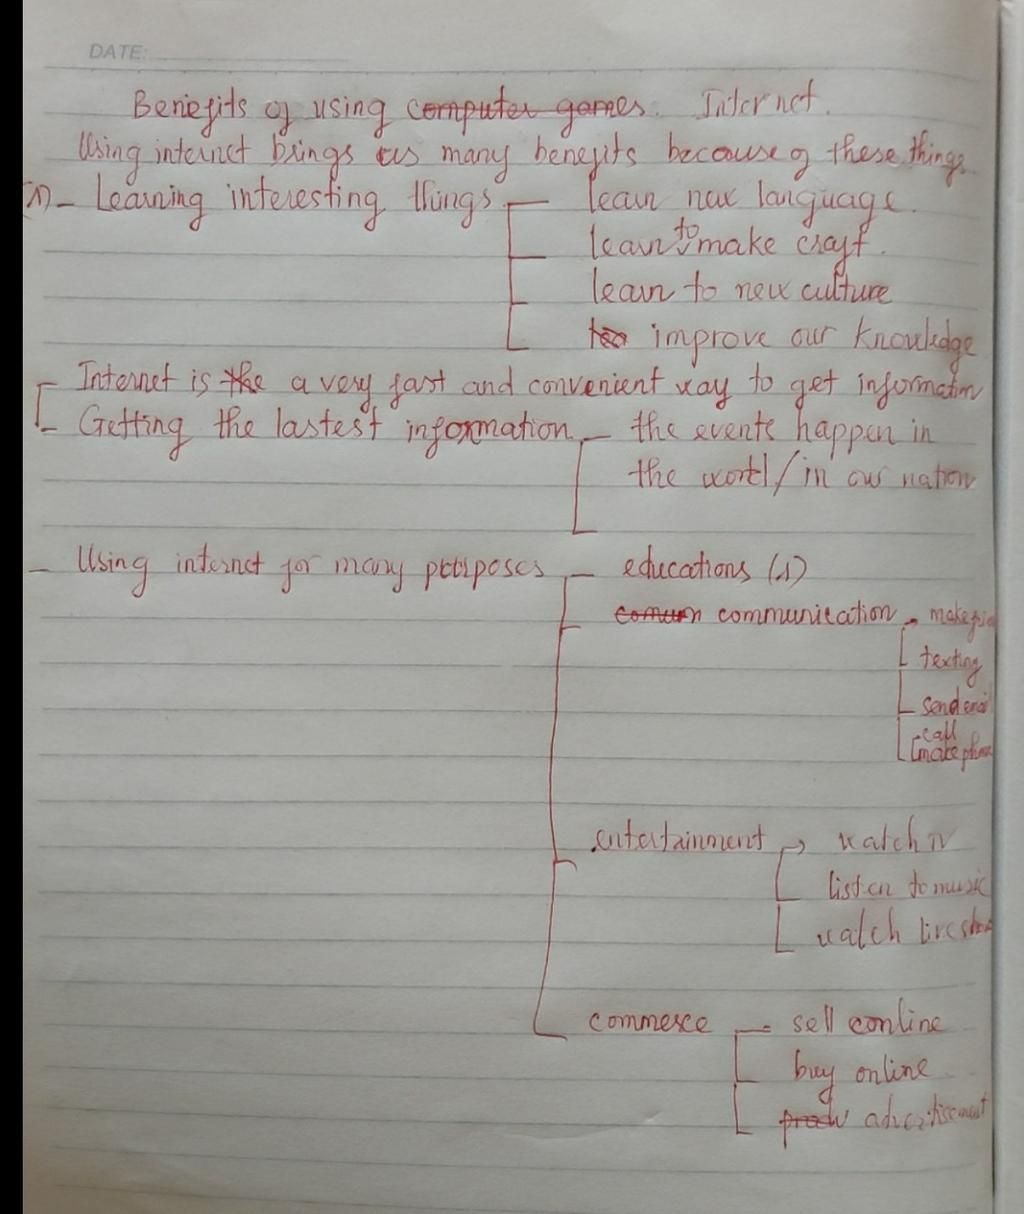 DATE:
Benefits of using computer games. Internet.
Using internet brings us many benefits because of these things.
(1) - Learning interesting things - learn new language.
learn to make craft.
learn to new culture
improve our knowledge
Internet is the a very fast and convenient way to get information
- Getting the lastest information - the events happen in
the world / in our nation
- Using internet for many purposes - educations (1)
comun communication - make
texting
send email
call
make phone
entertainment → watch TV
listen to music
watch live show
commerce - sell online
buy online
produ advertisement